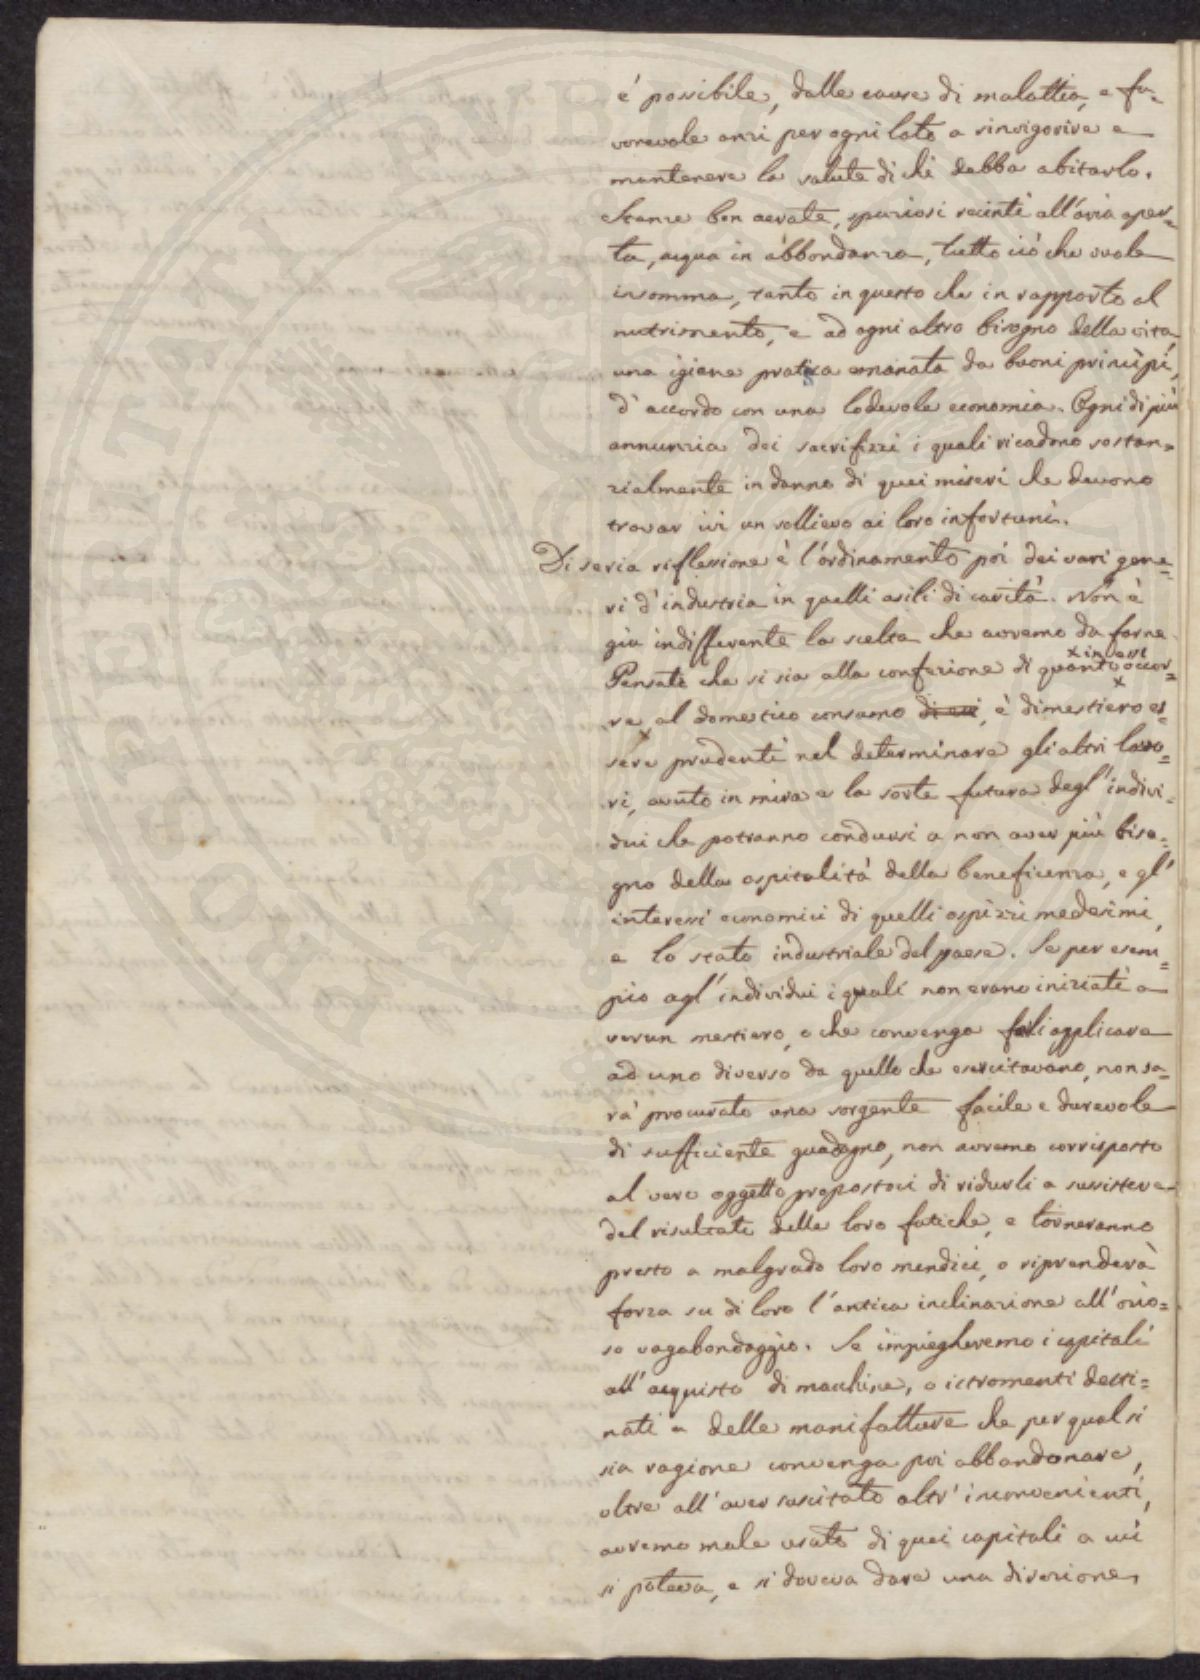 è possibile, dalle cause di malattia, e fa-
vorevole anzi per ogni lato a rinvigorire e
mantenere la salute di chi debba abitarlo.
Stanze ben aerate, spaziosi recinti all'aria aper-
ta, acqua in abbondanza, tutto ciò che vuole
insomma, tanto in questo che in rapporto al
nutrimento, e ad ogni altro bisogno della vita,
una igiene pratica emanata da buoni principj,
d'accordo con una lodevole economia. Ogni di più
annunzia dei sacrifizzi i quali ricadono sostan=
zialmente in danno di quei miseri che devono
trovar ivi un sollievo ai loro infortuni.
Di seria riflessione è l'ordinamento poi dei vari gene=
ri d'industria in quelli asili di carità. Non è
già indifferente la scelta che avremo da farne.
x in essi
Pensato che si sia alla confezione di quanto x occor=
re al domestico consumo di essi, è dimestiero es=
sere prudenti nel determinare gli altri lavo=
ri, avuto in mira e la sorte futura degl'indivi=
dui che potranno condursi a non aver più biso=
gno della ospitalità della beneficenza, e gl'
interessi economici di quelli ospizzi medesimi,
e lo stato industriale del paese. Se per esem=
pio agl'individui i quali non erano iniziati a
verun mestiero, o che convenga applicare
ad uno diverso da quello che esercitavano, non sa=
rà procurato una sorgente facile e durevole
di sufficiente guadagno, non avremo corrisposto
al vero oggetto propostoci di ridurli a sussistere
del risultato delle loro fatiche, e torneranno
presto a malgrado loro mendici, o riprenderà
forza su di loro l'antica inclinazione all'ozio=
so vagabondaggio. Se impiegheremo i capitali
all'acquisto di macchine, o istromenti desti=
nati a delle manifatture che per qual si
sia ragione convenga poi abbandonare,
oltre all'aver suscitato altr'inconvenienti,
avremo male usato di quei capitali a cui
si poteva, e si doveva dare una direzione